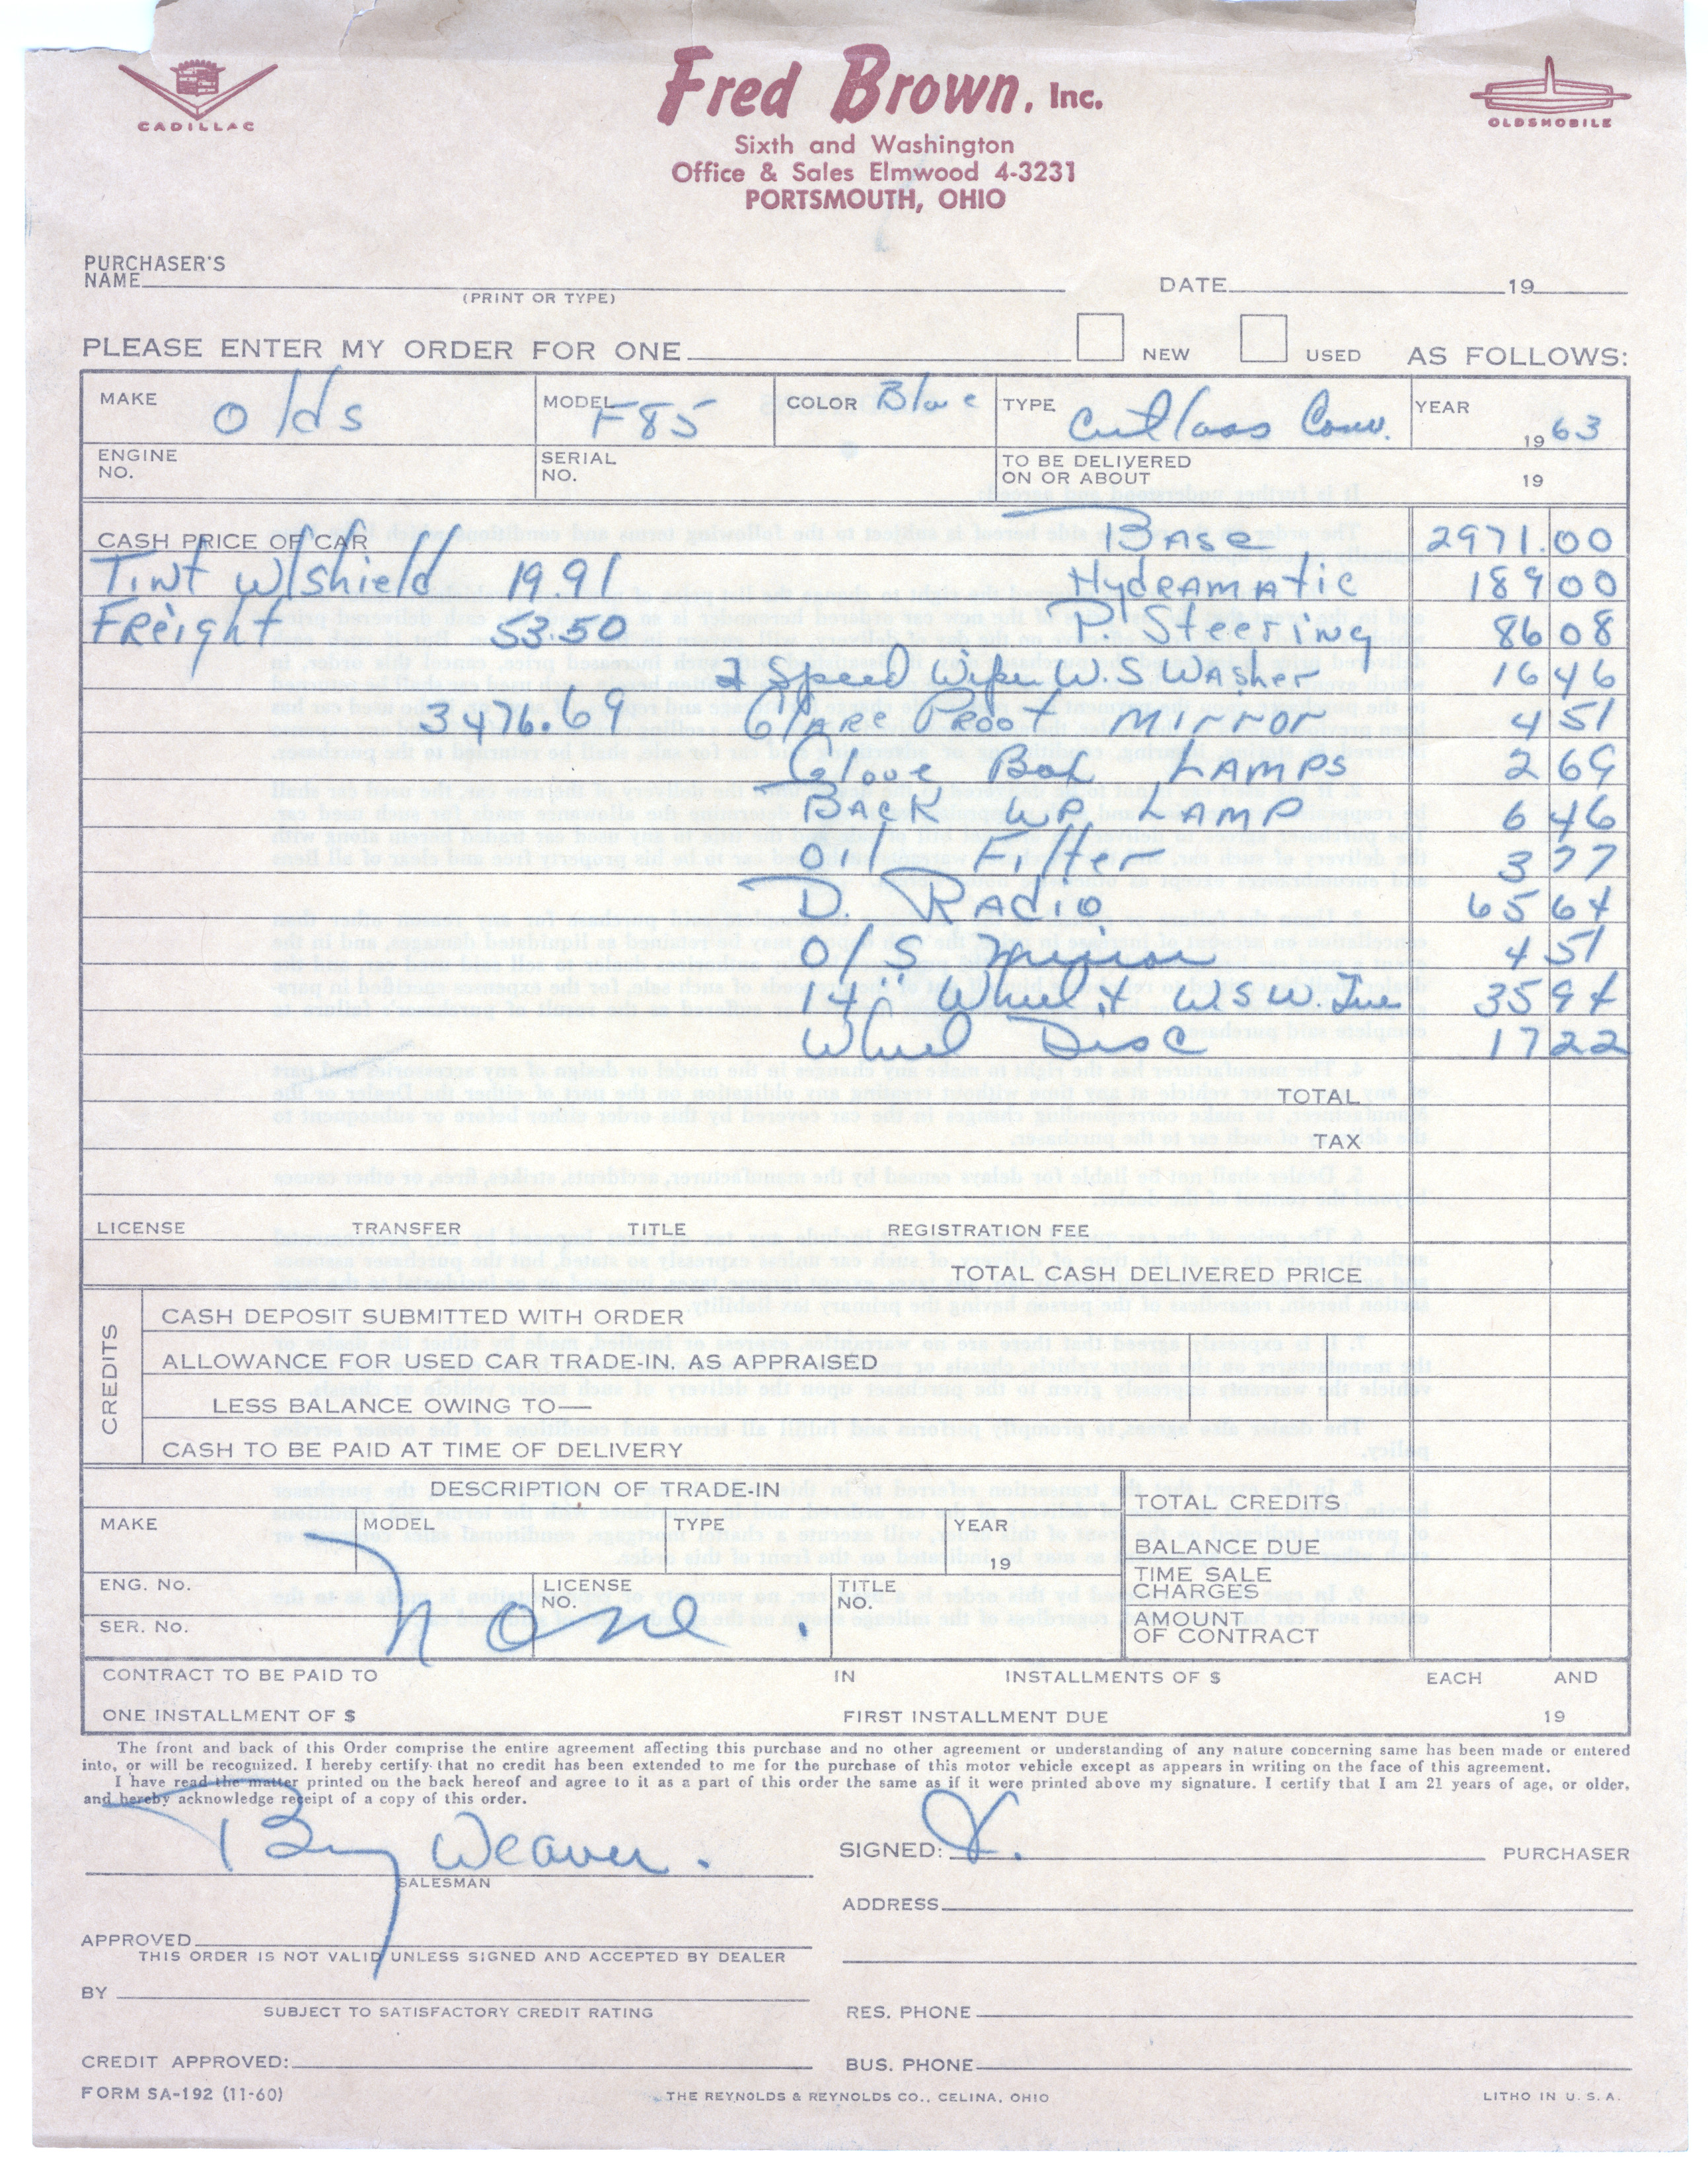 CADILLAC
Fred Brown, Inc.
OLDSMOBILE
Sixth and Washington
Office & Sales Elmwood 4-3231
PORTSMOUTH, OHIO
PURCHASER'S NAME
(PRINT OR TYPE)
DATE 19
PLEASE ENTER MY ORDER FOR ONE NEW USED AS FOLLOWS:
MAKE Olds MODEL F85 COLOR Blue TYPE Cutlass Conv. YEAR 1963
ENGINE NO. SERIAL NO. TO BE DELIVERED ON OR ABOUT 19
CASH PRICE OF CAR Base 2971.00
Tint W/Shield 19.91 Hydramatic 189 00
Freight 53.50 P Steering 86 08
2 Speed Wiper W.S Washer 16 46
3476.69 Glare Proof Mirror 4 51
Glove Box Lamps 2 69
Back up Lamp 6 46
Oil Filter 3 77
D. Radio 65 64
O/S Mirror 4 51
14" Wheel & W.S W. Tire 35 94
Wheel Disc 17 22
TOTAL
TAX
LICENSE TRANSFER TITLE REGISTRATION FEE
TOTAL CASH DELIVERED PRICE
CREDITS
CASH DEPOSIT SUBMITTED WITH ORDER
ALLOWANCE FOR USED CAR TRADE-IN, AS APPRAISED
LESS BALANCE OWING TO—
CASH TO BE PAID AT TIME OF DELIVERY
DESCRIPTION OF TRADE-IN
MAKE MODEL TYPE YEAR 19
ENG. No. LICENSE NO. TITLE NO.
SER. No.
None.
TOTAL CREDITS
BALANCE DUE
TIME SALE CHARGES
AMOUNT OF CONTRACT
CONTRACT TO BE PAID TO IN INSTALLMENTS OF $ EACH AND
ONE INSTALLMENT OF $ FIRST INSTALLMENT DUE 19
The front and back of this Order comprise the entire agreement affecting this purchase and no other agreement or understanding of any nature concerning same has been made or entered
into, or will be recognized. I hereby certify that no credit has been extended to me for the purchase of this motor vehicle except as appears in writing on the face of this agreement.
I have read the matter printed on the back hereof and agree to it as a part of this order the same as if it were printed above my signature. I certify that I am 21 years of age, or older,
and hereby acknowledge receipt of a copy of this order.
Weaver.
SALESMAN
SIGNED: X. PURCHASER
ADDRESS
APPROVED
THIS ORDER IS NOT VALID UNLESS SIGNED AND ACCEPTED BY DEALER
BY
SUBJECT TO SATISFACTORY CREDIT RATING
RES. PHONE
CREDIT APPROVED:
BUS. PHONE
FORM SA-192 (11-60)
THE REYNOLDS & REYNOLDS CO., CELINA, OHIO
LITHO IN U. S. A.